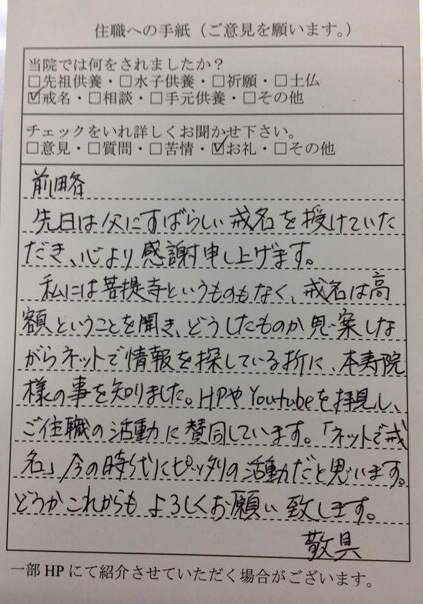 住職への手紙（ご意見を願います。）
当院では何をされましたか？
□先祖供養・□水子供養・□祈願・□土仏
☑戒名・□相談・□手元供養・□その他
チェックをいれ詳しくお聞かせ下さい。
□意見・□質問・□苦情・☑お礼・□その他
前略
先日は父にすばらしい戒名を授けていた
だき、心より感謝申し上げます。
私には菩提寺というものもなく、戒名は高
額ということを聞き、どうしたものか思案しな
がらネットで情報を探している折に、本寿院
様の事を知りました。HPやYoutubeを拝見し、
ご住職の活動に賛同しています。「ネットで戒
名」今の時代にピッタリの活動だと思います。
どうかこれからもよろしくお願い致します。
敬具
一部HPにて紹介させていただく場合がございます。